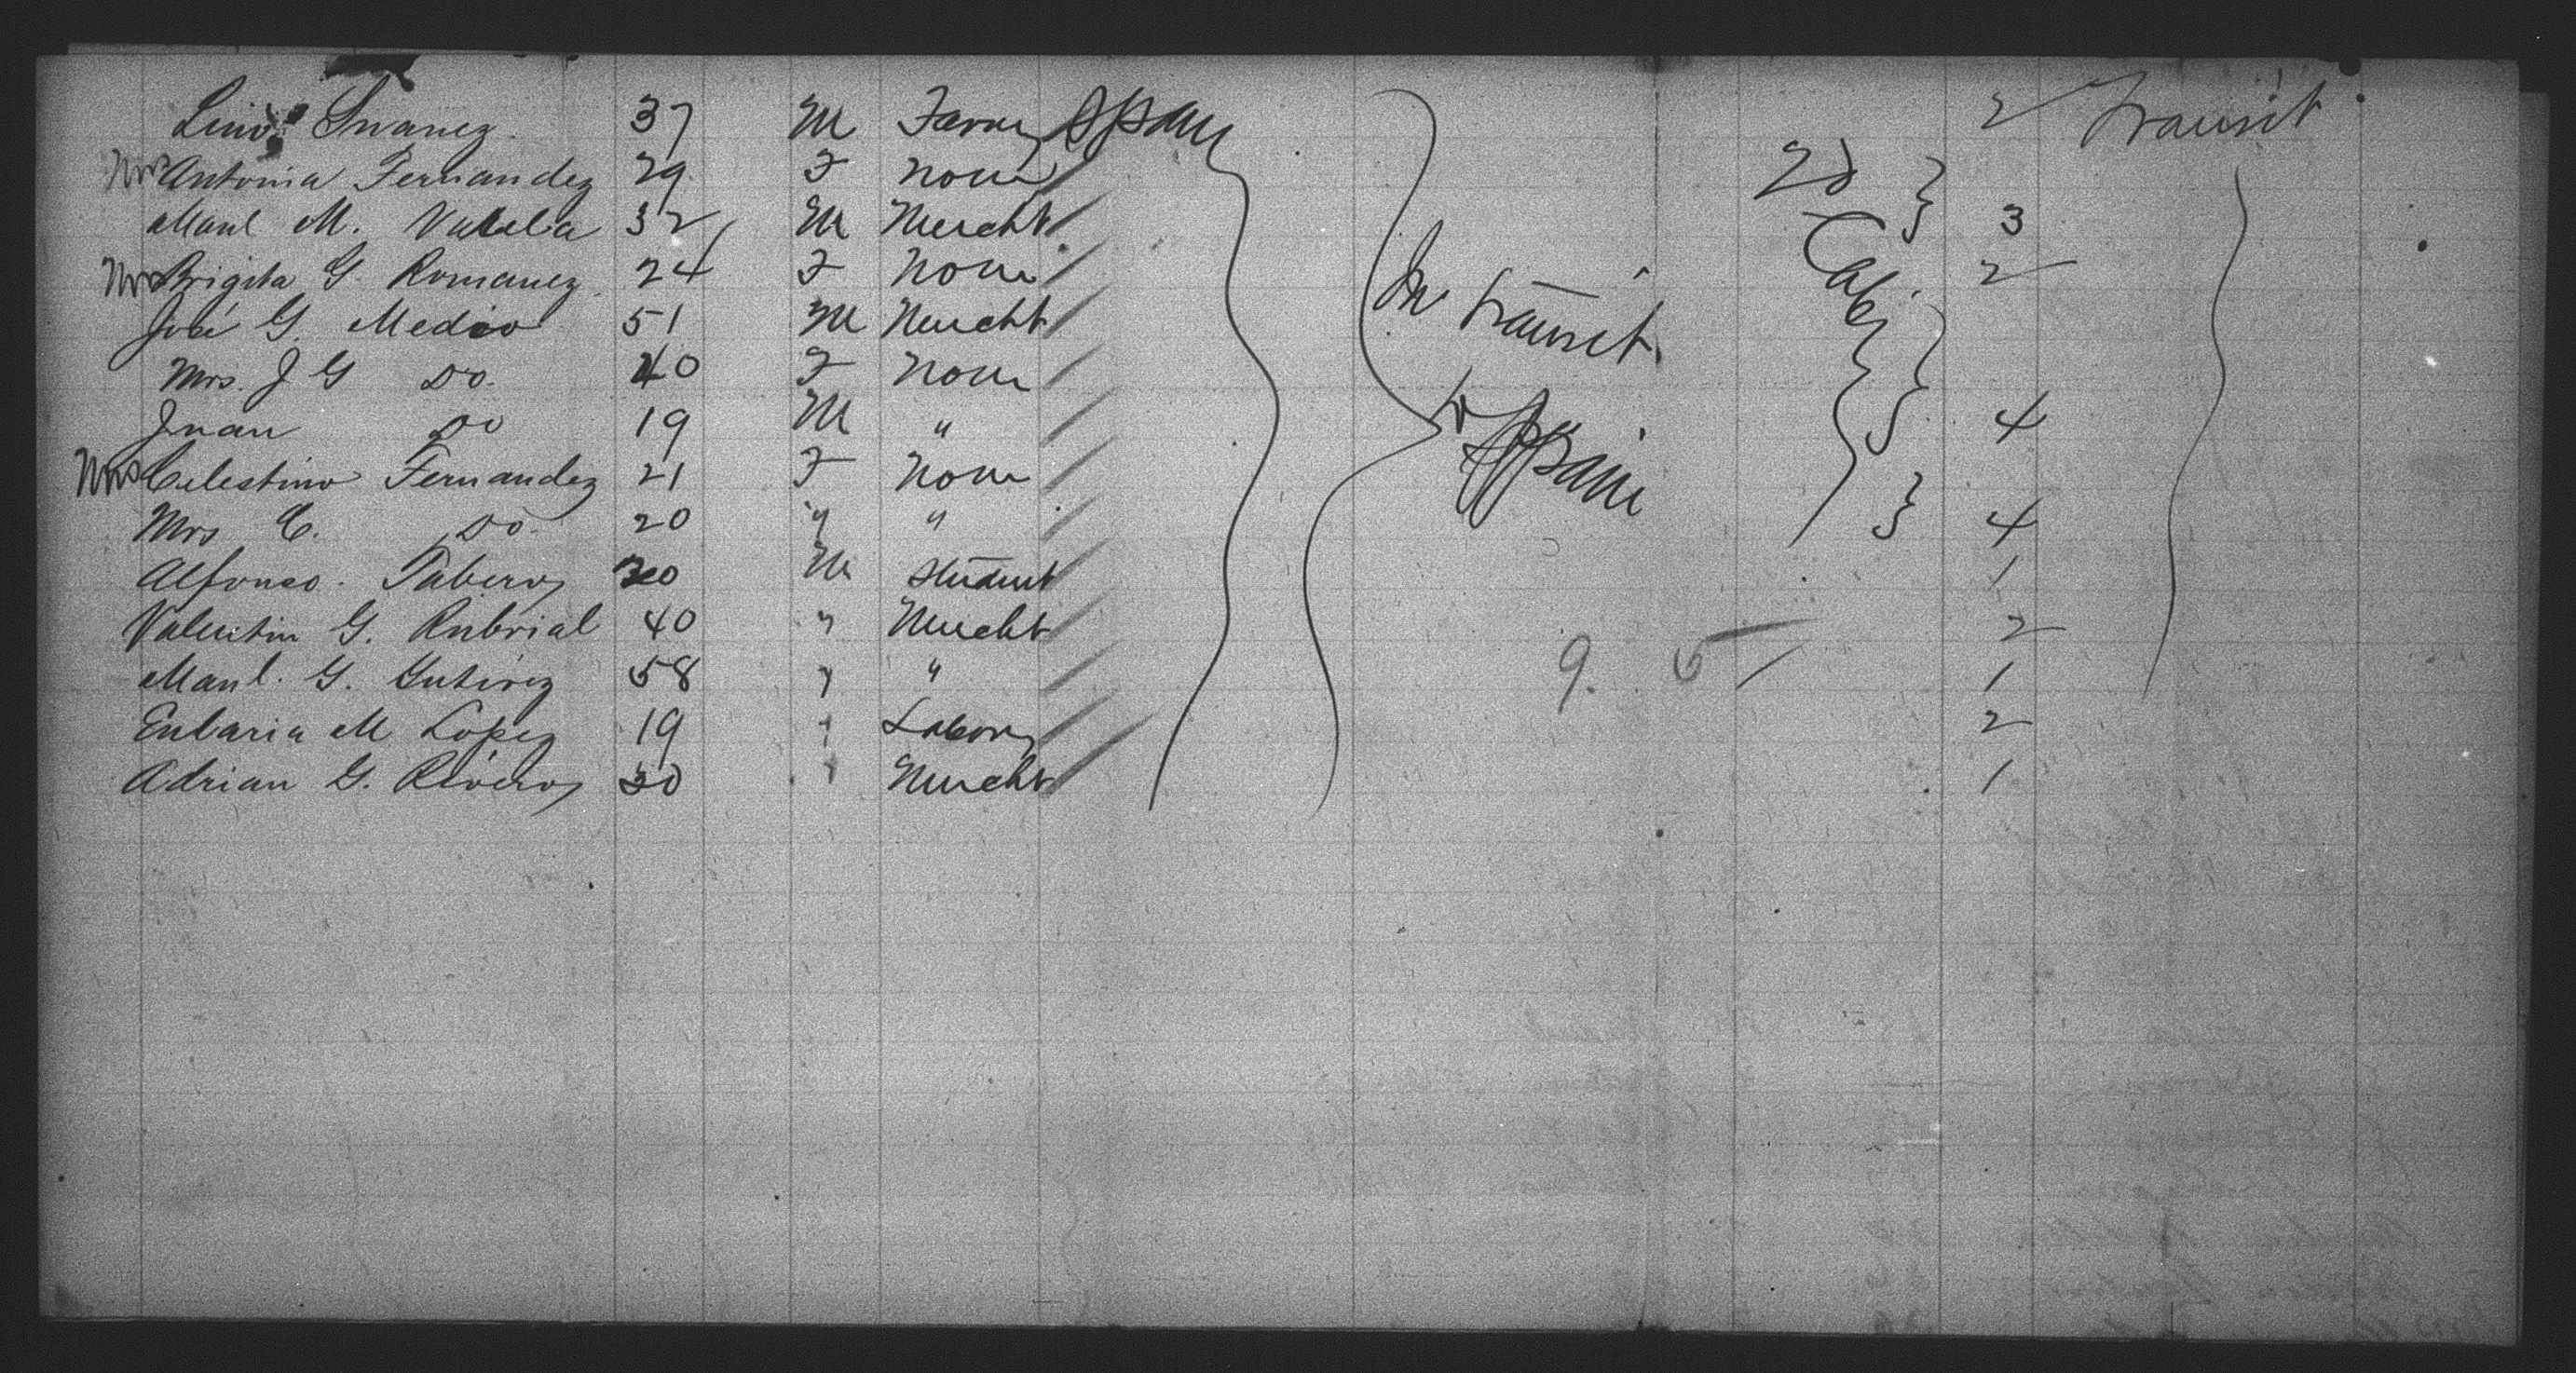 Lino Suarez 37 M Farmr Spain 2 Transit
Mrs Antonia Fernandez 29 F None
Manl M. Valela 32 M Mercht 2d Cab. 3
Mrs Brigita G. Romanez 24 F None In transit to Spain 2
José G. Medio 51 M Mercht
Mrs. J G Do. 40 F None
Juan Do 19 M " 4
Mrs Celestino Fernandez 21 F None
Mrs C. Do. 20 " " 4
Alfonso Tabero 20 M Student 1
Valentin G. Rubrial 40 " Mercht 2
Manl. G. Gutirez 58 " " 9. 5 1
Eubaria M Lopez 19 " Laborr 2
Adrian G. Rivero 30 " Mercht 1